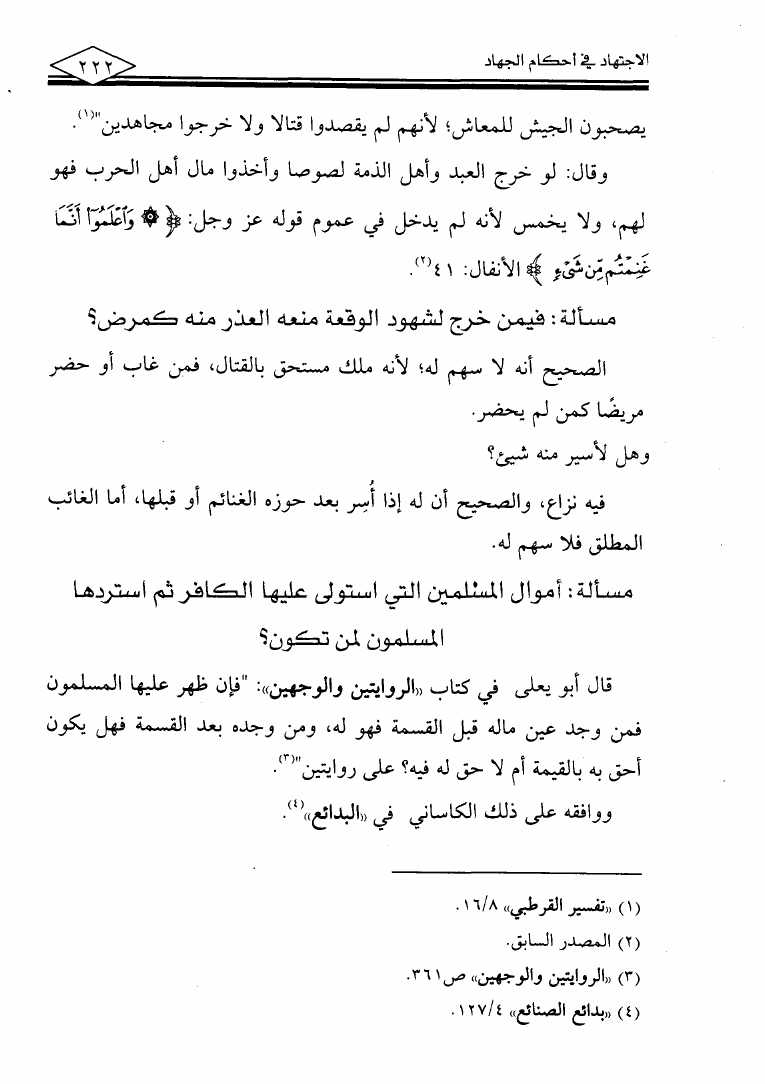 الاجتهاد في أحكام الجهاد
٢٢٢
يصحبون الجيش للمعاش؛ لأنهم لم يقصدوا قتالا ولا خرجوا مجاهدين"(١).
وقال: لو خرج العبد وأهل الذمة لصوصا وأخذوا مال أهل الحرب فهو
لهم، ولا يخمس لأنه لم يدخل في عموم قوله عز وجل: ﴿ ۞ وَٱعْلَمُوٓا۟ أَنَّمَا
غَنِمْتُم مِّن شَىْءٍ ﴾ الأنفال: ٤١(٢).
مسألة: فيمن خرج لشهود الوقعة منعه العذر منه كمرض؟
الصحيح أنه لا سهم له؛ لأنه ملك مستحق بالقتال، فمن غاب أو حضر
مريضًا كمن لم يحضر.
وهل لأسير منه شيئ؟
فيه نزاع، والصحيح أن له إذا أُسِر بعد حوزه الغنائم أو قبلها، أما الغائب
المطلق فلا سهم له.
مسألة: أموال المسلمين التي استولى عليها الكافر ثم استردها
المسلمون لمن تكون؟
قال أبو يعلى في كتاب «الروايتين والوجهين»: "فإن ظهر عليها المسلمون
فمن وجد عين ماله قبل القسمة فهو له، ومن وجده بعد القسمة فهل يكون
أحق به بالقيمة أم لا حق له فيه؟ على روايتين"(٣).
ووافقه على ذلك الكاساني في «البدائع»(٤).
(١) «تفسير القرطبي» ١٦/٨.
(٢) المصدر السابق.
(٣) «الروايتين والوجهين» ص٣٦١.
(٤) «بدائع الصنائع» ١٢٧/٤.